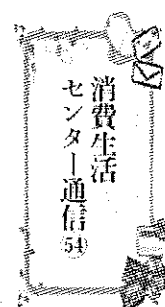 消費生活
センター通信54